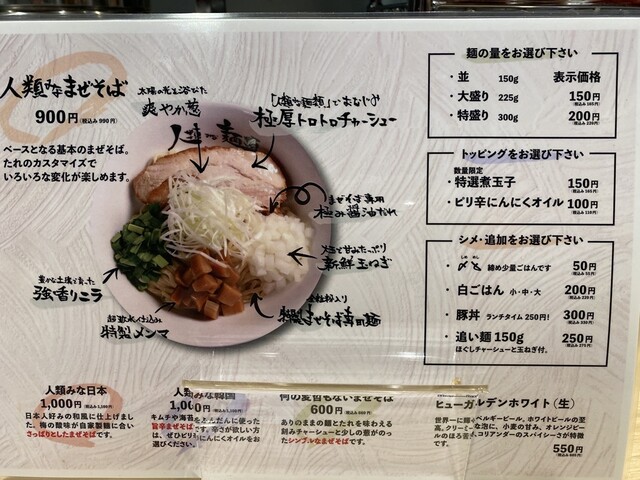 人類みなまぜそば
900円(税込み990円)
ベースとなる基本のまぜそば。
たれのカスタマイズで
いろいろな変化が楽しめます。
太陽の光を浴びた
爽やか葱
「人類みな麺類」でおなじみ
極厚トロトロチャーシュー
人類みな麺類
まぜそば専用
極み醤油だれ
新鮮玉ねぎ
全粒粉入り
特製まぜそば専用麺
豊かな土壌で育った
強香りニラ
特製メンマ
麺の量をお選び下さい
・並 150g 表示価格
・大盛り 225g 150円(税込み165円)
・特盛り 300g 200円(税込み220円)
トッピングをお選び下さい
数量限定
・特選煮玉子 150円(税込み165円)
・ピリ辛にんにくオイル 100円(税込み110円)
シメ・追加をお選び下さい
・〆め 締め少量ごはんです 50円(税込み55円)
・白ごはん 小・中・大 200円(税込み220円)
・豚丼 ランチタイム250円! 300円(税込み330円)
・追い麺150g 250円(税込み275円)
ほぐしチャーシューと玉ねぎ付。
人類みな日本
1,000円
日本人好みの和風に仕上げました。
梅の酸味が自家製麺に合い
さっぱりとしたまぜそばです。
人類みな韓国
1,000円
キムチや海苔をふんだんに使った
旨辛まぜそばです。辛さが欲しい方
は、ぜひピリ辛にんにくオイルをお
選びください。
何の変哲もないまぜそば
600円
ありのままの麺とたれを味わえる
刻みチャーシューと少しの葱がのっ
たシンプルなまぜそばです。
ヒューガルデンホワイト(生)
ベルギービール。ホワイトビールの至
コリアンダーのスパイシーさが特徴
550円